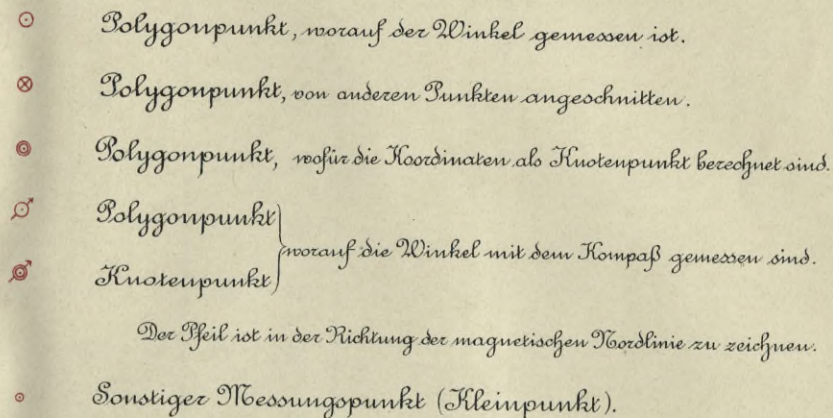 Polygonpunkt, worauf der Winkel gemessen ist.
Polygonpunkt, von anderen Punkten angeschnitten.
Polygonpunkt, wofür die Koordinaten als Knotenpunkt berechnet sind.
Polygonpunkt
worauf die Winkel mit dem Kompaß gemessen sind.
Knotenpunkt
Der Pfeil ist in der Richtung der magnetischen Nordlinie zu zeichnen.
Sonstiger Messungspunkt (Kleinpunkt).